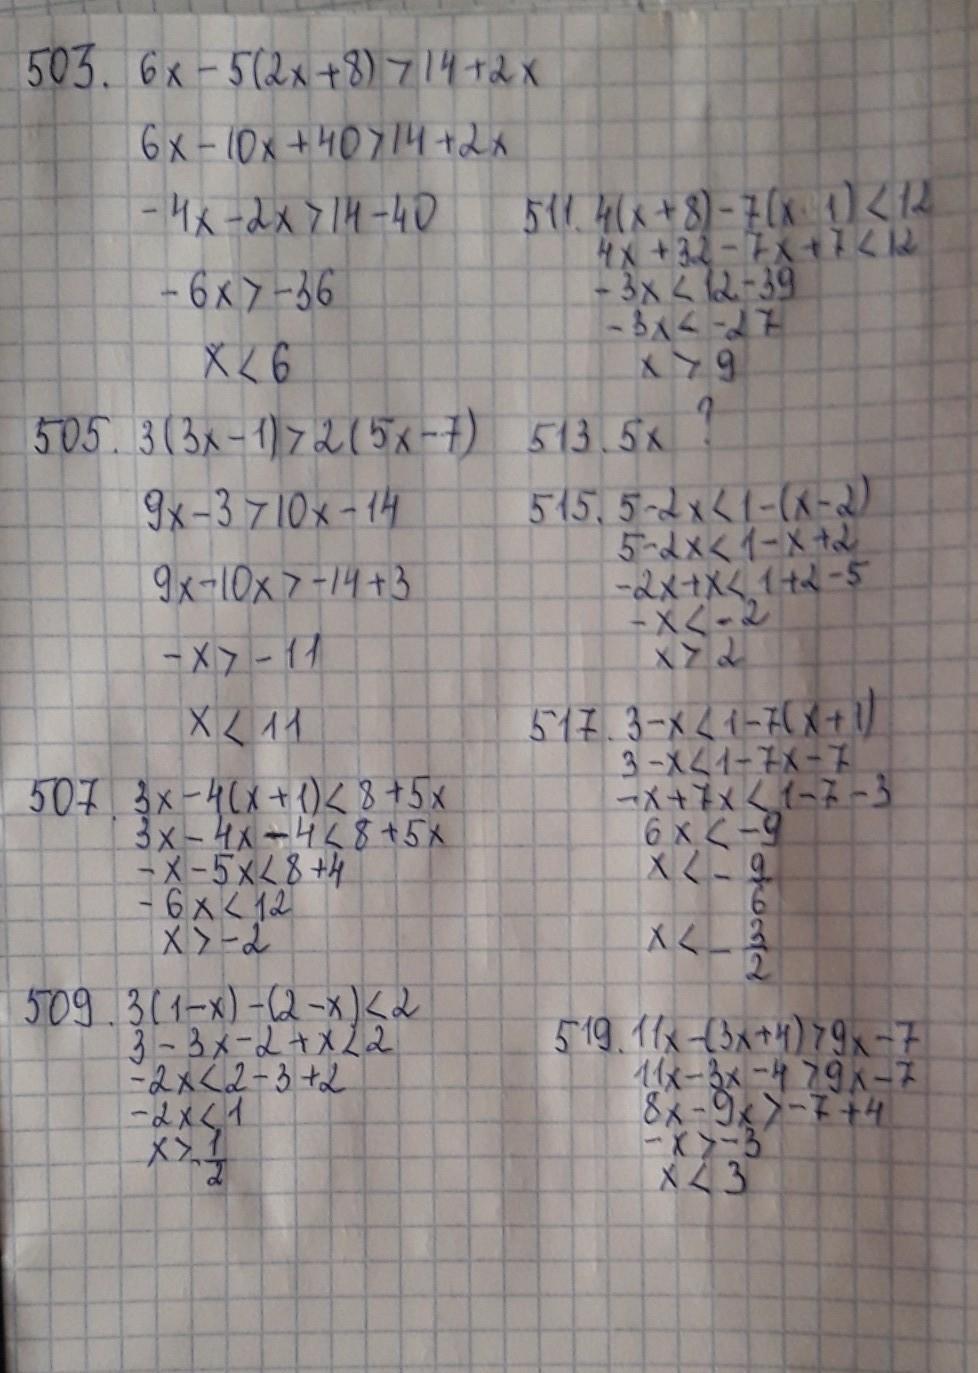 503. 6x - 5(2x+8) > 14+2x
6x - 10x + 40 > 14 + 2x
-4x - 2x > 14 - 40
-6x > -36
x < 6
505. 3(3x-1) > 2(5x-7)
9x - 3 > 10x - 14
9x - 10x > -14 + 3
-x > -11
x < 11
507. 3x - 4(x+1) < 8 + 5x
3x - 4x - 4 < 8 + 5x
-x - 5x < 8 + 4
-6x < 12
x > -2
509. 3(1-x) - (2-x) < 2
3 - 3x - 2 + x < 2
-2x < 2 - 3 + 2
-2x < 1
x > -1/2
511. 4(x+8) - 7(x-1) < 12
4x + 32 - 7x + 7 < 12
-3x < 12 - 39
-3x < -27
x > 9
513. 5x ?
515. 5 - 2x < 1 - (x-2)
5 - 2x < 1 - x + 2
-2x + x < 1 + 2 - 5
-x < -2
x > 2
517. 3 - x < 1 - 7(x+1)
3 - x < 1 - 7x - 7
-x + 7x < 1 - 7 - 3
6x < -9
x < -9/6
x < -3/2
519. 11x - (3x+4) > 9x - 7
11x - 3x - 4 > 9x - 7
8x - 9x > -7 + 4
-x > -3
x < 3